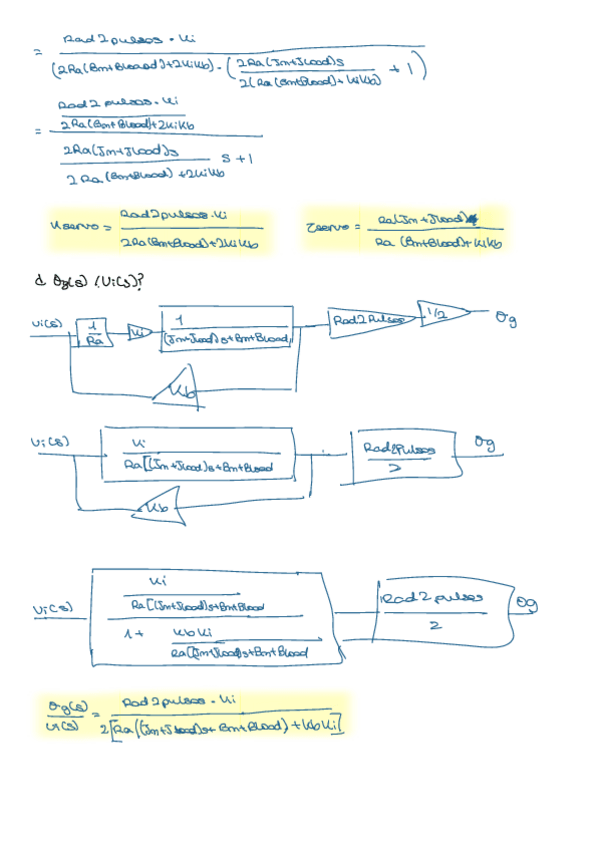 = Rad2pulsos · Ki / (2Ra(Bm+Bload)+2KiKb) · ( 2Ra(Jm+Jload)s / 2(Ra(Bm+Bload)+KiKb) + 1 )
= Rad2pulsos · Ki / 2Ra(Bm+Bload)+2KiKb
2Ra(Jm+Jload)s / 2Ra(Bm+Bload)+2KiKb s + 1
Kservo = Rad2pulsos·Ki / 2Ra(Bm+Bload)+2KiKb
τservo = Ra(Jm+Jload) / Ra(Bm+Bload)+KiKb
d. θg(s) / Ui(s)?
Ui(s) 1/Ra Ki 1 / (Jm+Jload)s+Bm+Bload Rad2Pulsos 1/2 θg
Kb
Ui(s) Ki / Ra[(Jm+Jload)s+Bm+Bload Rad2Pulsos / 2 θg
Kb
Ui(s) Ki / Ra[(Jm+Jload)s+Bm+Bload Rad2pulses / 2 θg
1+ KbKi / Ra[(Jm+Jload)s+Bm+Bload
θg(s) / Ui(s) = Rad2pulsos · Ki / 2[Ra((Jm+Jload)s+Bm+Bload)+KbKi]